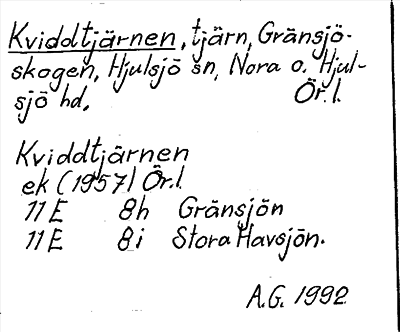 Kviddtjärnen, tjärn, Gränsjö-
skogen, Hjulsjö sn, Nora o. Hjul-
sjö hd. Ör. l.
Kviddtjärnen
ek (1957) Ör.l.
11 E 8h Gränsjön
11 E 8i Stora Havsjön.
A.G. 1992